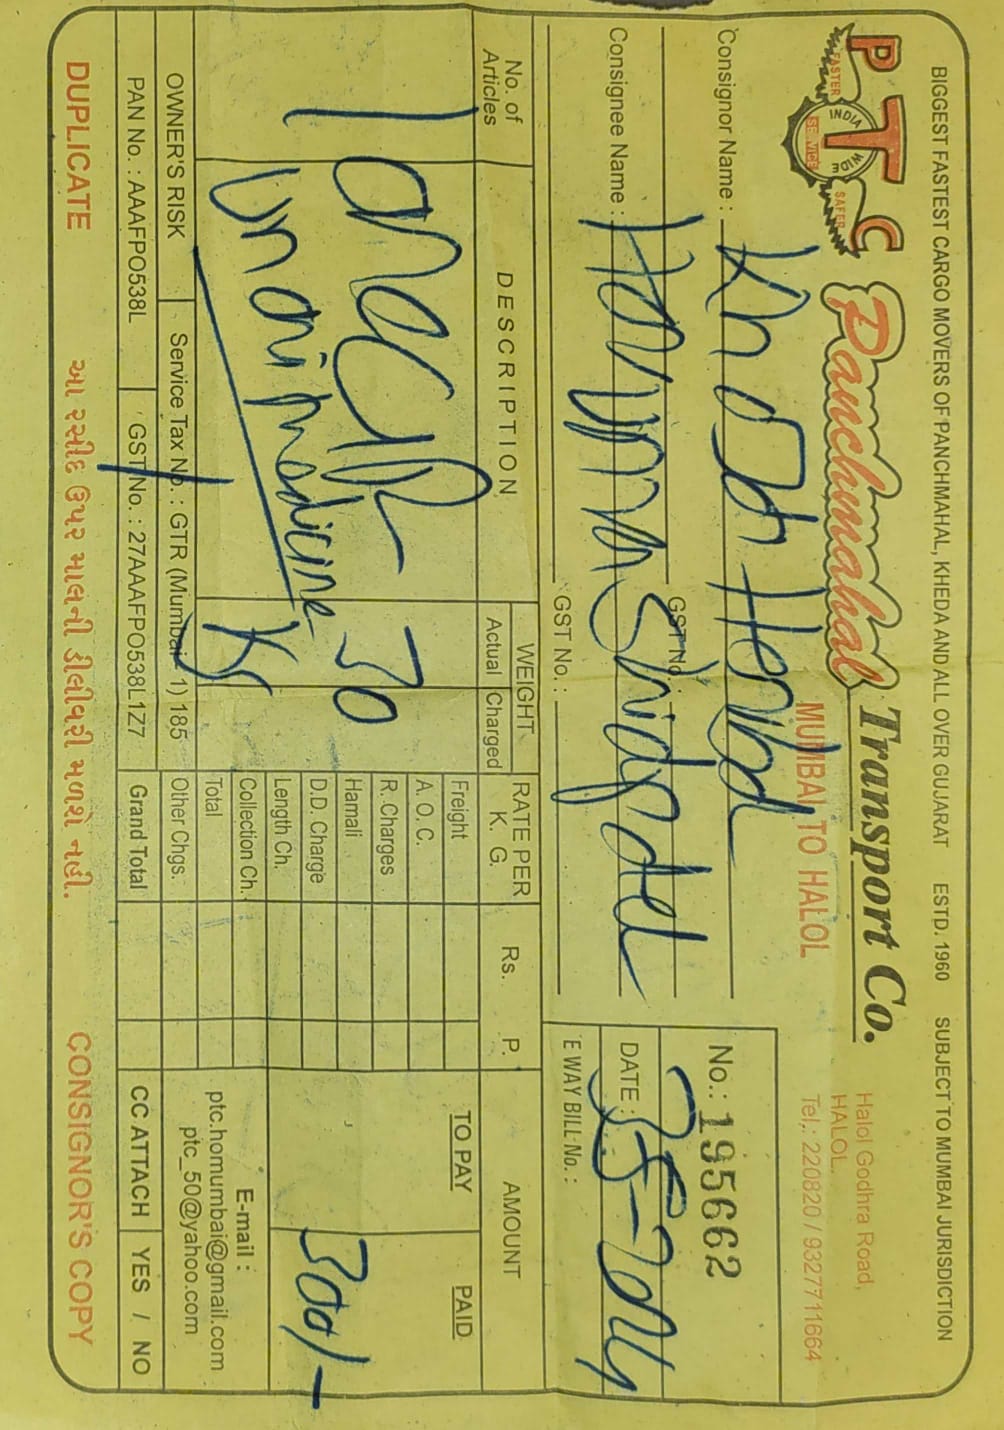 BIGGEST FASTEST CARGO MOVERS OF PANCHMAHAL, KHEDA AND ALL OVER GUJARAT ESTD. 1960 SUBJECT TO MUMBAI JURISDICTION
PTC
FASTER INDIA WIDE SERVICE SAFER
Panchmahal Transport Co.
Halol Godhra Road,
HALOL.
Tel.: 220820 / 9327711664
MUMBAI TO HALOL
Consignor Name :
GST No. :
Consignee Name :
GST No. :
No.: 195662
DATE :
E WAY BILL No. :
No. of Articles
DESCRIPTION
WEIGHT
Actual Charged
RATE PER K. G.
Rs. P.
AMOUNT
TO PAY PAID
1
30
Kg
Unani medicine
300/-
Freight
A. O. C.
R. Charges
Hamali
D.D. Charge
Length Ch.
Collection Ch.
Total
Other Chgs.
Grand Total
E-mail :
ptc.homumbai@gmail.com
ptc_50@yahoo.com
OWNER'S RISK Service Tax No. : GTR (Mumbai 1) 185
PAN No. : AAAFPO538L GST No. : 27AAAFPO538L1Z7
CC ATTACH YES / NO
DUPLICATE આ રસીદ ઉપર માલની ડીલીવરી મળશે નહી. CONSIGNOR'S COPY